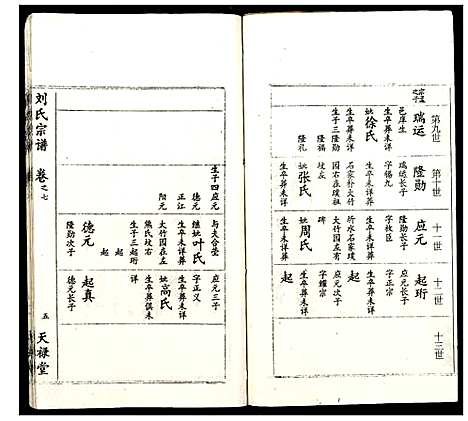 宗孟之子
第九世
瑞运
邑庠生
生卒葬未详
妣徐氏
生卒葬未详
生子三隆勋
隆福
隆礼
第十世
隆勋
瑞运长子
字锡九
生卒未详
石家朴大竹
园右在璞祖
坟左
妣张氏
生卒葬未详
生子四应元
德元
正江
阳元
十一世
应元
隆勋长子
字牧臣
生卒未详
所水石家璞
大竹园左有
碑
妣周氏
生卒葬未详
与夫合茔
继妣叶氏
生卒未详葬
大竹园在左
熊氏坟右
生子三起珩
起
起
德元
隆勋次子
十二世
起珩
应元长子
字正宗
生卒葬未详
起
应元次子
字耀宗
生卒葬未详
起
应元三子
字正义
生卒葬未详
妣高氏
生卒葬俱未
详
起真
德元长子
十三世
刘氏宗谱
卷之七
五
天禄堂